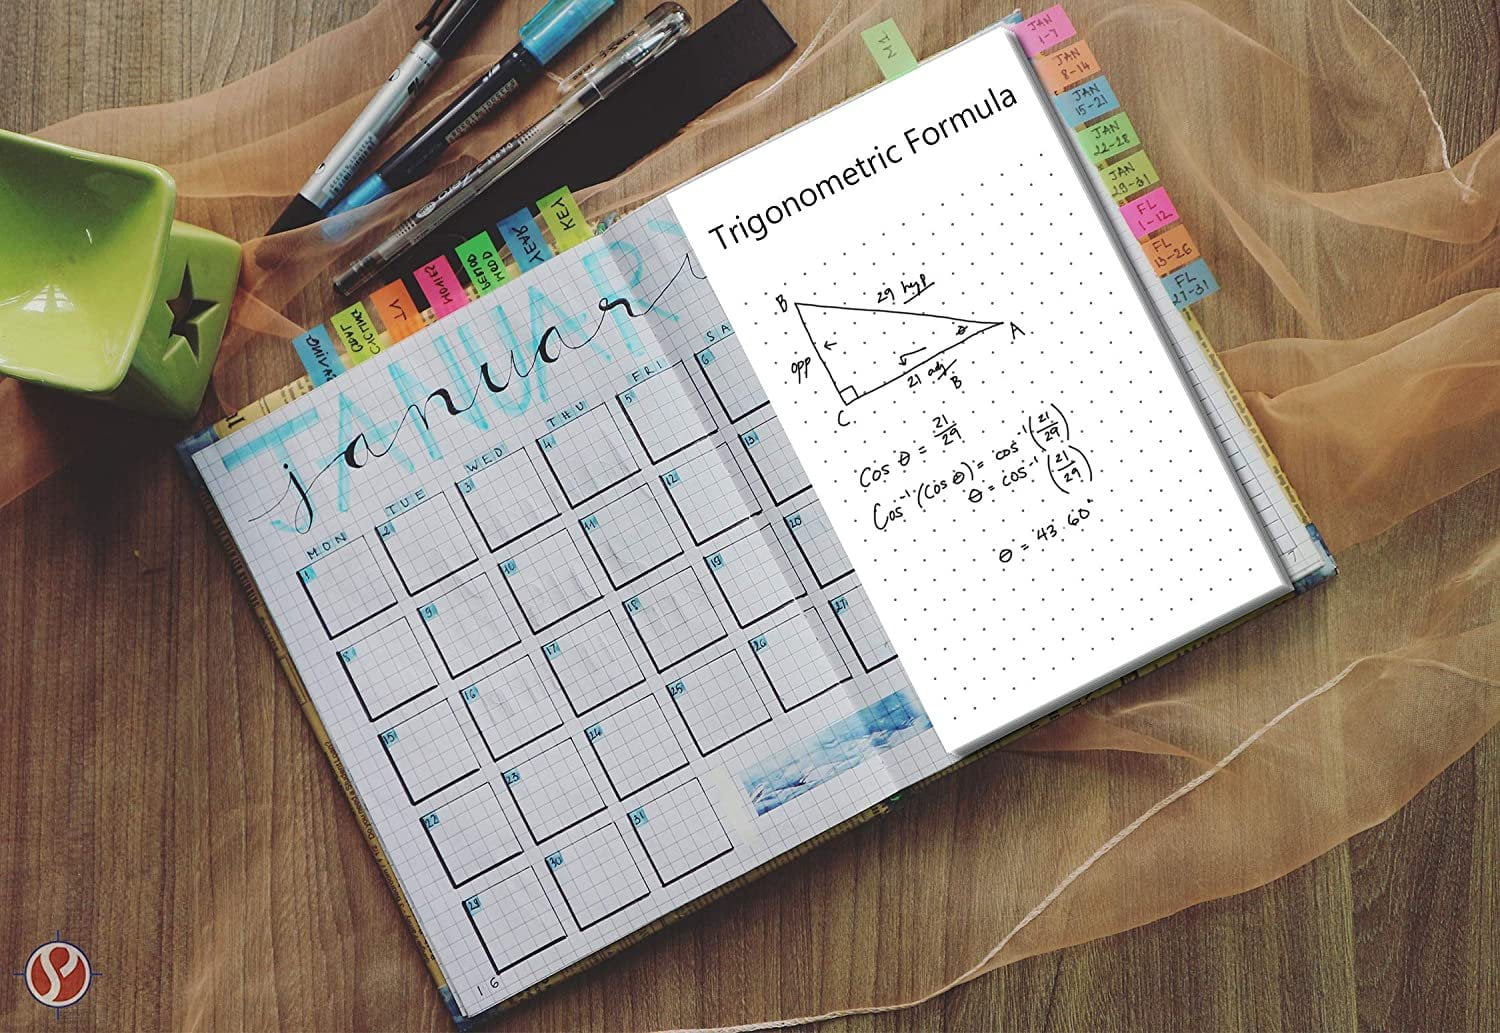 KEY
YEAR
MOVIES
JANUARY
january
MON
TUE
WED
THU
FRI
SA
1
2
3
4
5
6
8
9
10
11
12
13
15
16
17
18
19
20
22
23
24
25
26
27
29
30
31
16
Trigonometric Formula
B
29 hyp
A
opp
21 adj
B
C
Cos θ = 21/29
Cos⁻¹ (Cos θ) = cos⁻¹ (21/29)
θ = cos⁻¹ (21/29)
θ = 43.60°
JAN
1-7
JAN
8-14
JAN
15-21
JAN
22-28
JAN
29-31
FL
1-12
FL
13-26
FL
27-31